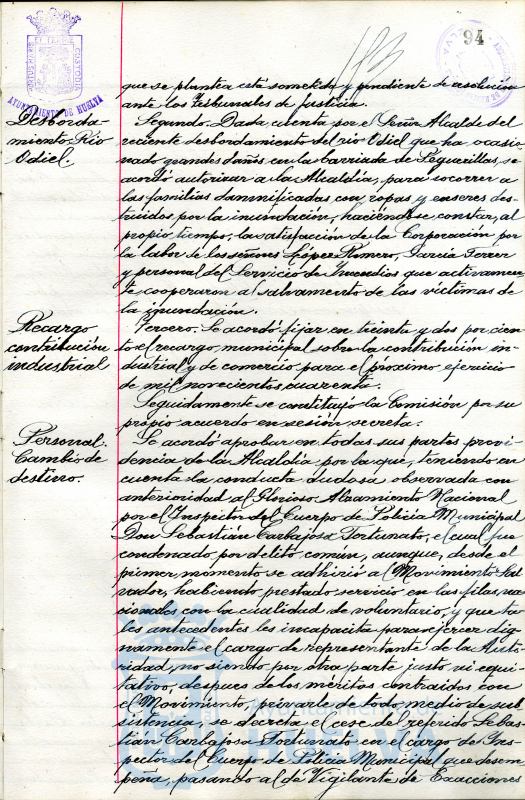 94
AYUNTAMIENTO DE HUELVA
que se plantea está sometido y pendiente de resolución
ante los Tribunales de justicia.
Desborda-
miento Río
Odiel.
Segundo. Dada cuenta por el Señor Alcalde del
reciente desbordamiento del río Odiel que ha ocasio-
nado grandes daños en la barriada de Peguerillas, se
acordó autorizar a la Alcaldía, para socorrer a
las familias damnificadas con ropas y enseres des-
truidos por la inundación, haciéndose constar, al
propio tiempo, la satisfacción de la Corporación por
la labor de los señores López Romero, García Ferrer
y personal del Servicio de Incendios que activamen-
te cooperaron al salvamento de las víctimas de
la inundación.
Recargo
contribución
industrial
Tercero. Se acordó fijar en treinta y dos por cien-
to el recargo municipal sobre la contribución in-
dustrial y de comercio para el próximo ejercicio
de mil novecientos cuarenta.
Seguidamente se constituyó la Comisión por su
propio acuerdo en sesión secreta.
Personal.
Cambio de
destino.
Se acordó aprobar en todas sus partes provi-
dencia de la Alcaldía por la que, teniendo en
cuenta la conducta dudosa observada con
anterioridad al Glorioso Alzamiento Nacional
por el Inspector del Cuerpo de Policía Municipal
Don Sebastián Carbajosa Fortunato, el cual fue
condenado por delito común, aunque, desde el
primer momento se adhirió al Movimiento Sal-
vador, habiendo prestado servicio en las filas na-
cionales con la cualidad de voluntario, y que ta-
les antecedentes les incapacita para ejercer dig-
namente el cargo de representante de la Auto-
ridad, no siendo por otra parte justo ni equi-
tativo, despues de los méritos contraidos con
el Movimiento, privarle de todo medio de sub-
sistencia, se decreta el cese del referido Sebas-
tián Carbajosa Fortunato en el cargo de Ins-
pector del Cuerpo de Policía Municipal que desem-
peña, pasando al de Vigilante de Exacciones